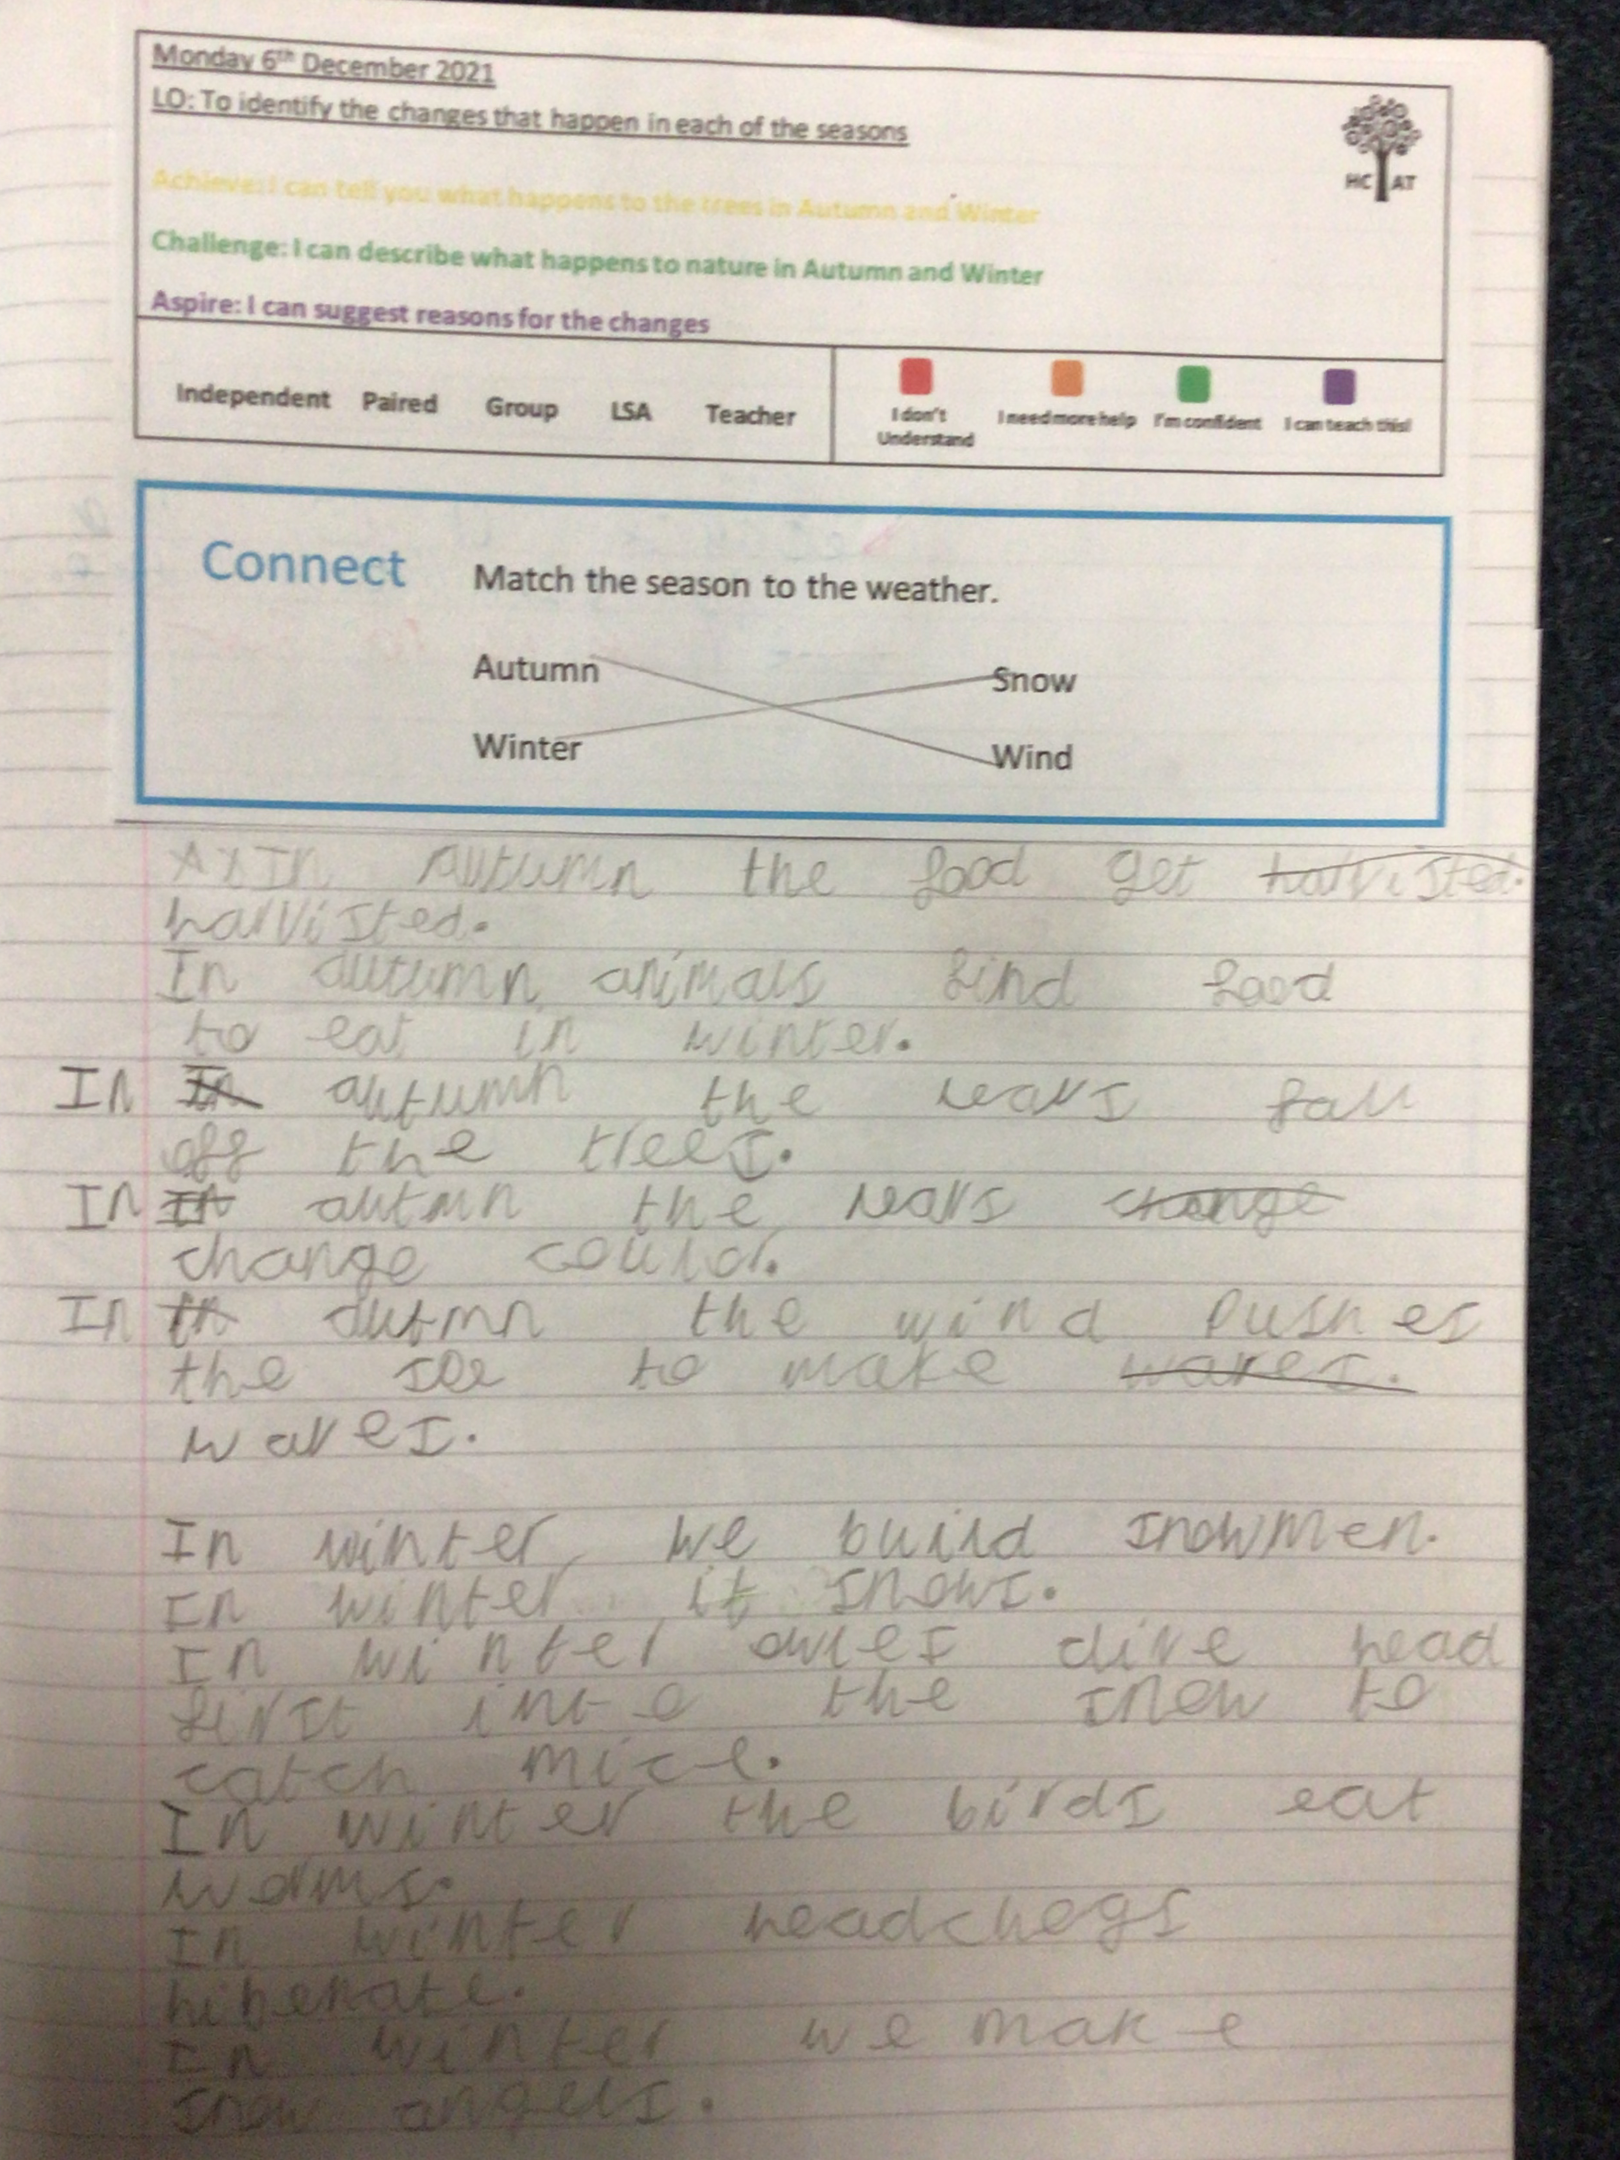 Monday 6th December 2021
LO: To identify the changes that happen in each of the seasons
HC AT
Achieve: I can tell you what happens to the trees in Autumn and Winter
Challenge: I can describe what happens to nature in Autumn and Winter
Aspire: I can suggest reasons for the changes
Independent Paired Group LSA Teacher
I don't Understand I need more help I'm confident I can teach this!
Connect
Match the season to the weather.
Autumn Snow
Winter Wind
In Autumn the food get harvisted.
harvisted.
In autumn animals find food
to eat in winter.
In In autumn the leavs fall
off the trees.
In In autmn the leavs change
change coulor.
In In autmn the wind pushes
the see to make waves.
waves.
In winter we build snowmen.
In winter it snows.
In winter owles dive head
first into the snow to
catch mice.
In winter the birds eat
worms.
In winter headchogs
hibenate.
In winter we make
snow angels.